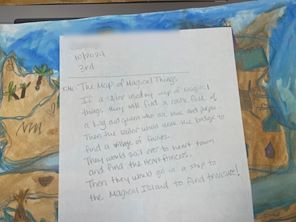 10/2024
3rd
The Map of Magical Things
If a sailor used my map of magical
things they will find a cave full of
a big and queen who are blue and purple.
Then the sailor would walk the bridge to
find a village of fairies.
They would sail over to heart town
and find the heart princess.
Then they would go in a ship to
the Magical Island to find treasure!